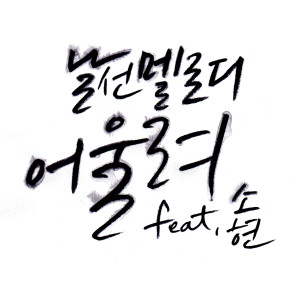 날선멜로디
어울려
feat. 소현